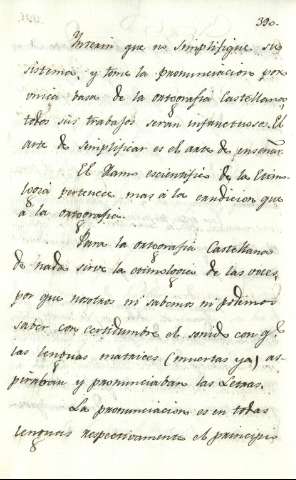 390.
Interin que no simplifique su
sistema, y tome la pronunciacion por
unica basa de la ortografia Castellana,
todos sus trabajos seran infructuosos. El
arte de simplificar es el arte de enseñar.
El Ramo escientifico de la Etimo
logia pertenece mas á la erudicion que
á la ortografia.
Para la ortografia Castellana
de nada sirve la etimologia de las voces,
por que nosotros ni sabemos ni podemos
saber con certidumbre el sonido con q.e
las lenguas matrices (muertas ya) as-
piraban y pronunciaban las Letras.
La pronunciacion es en todas
lenguas respectivamente el principio